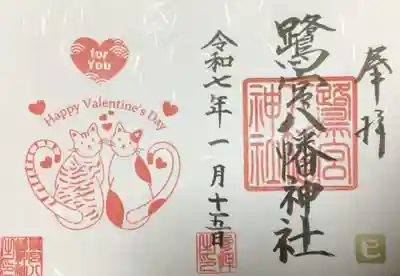 奉拝
鷺宮八幡神社
鷺宮
神社
令和七年一月十五日
for
You
Happy Valentine's Day
巳